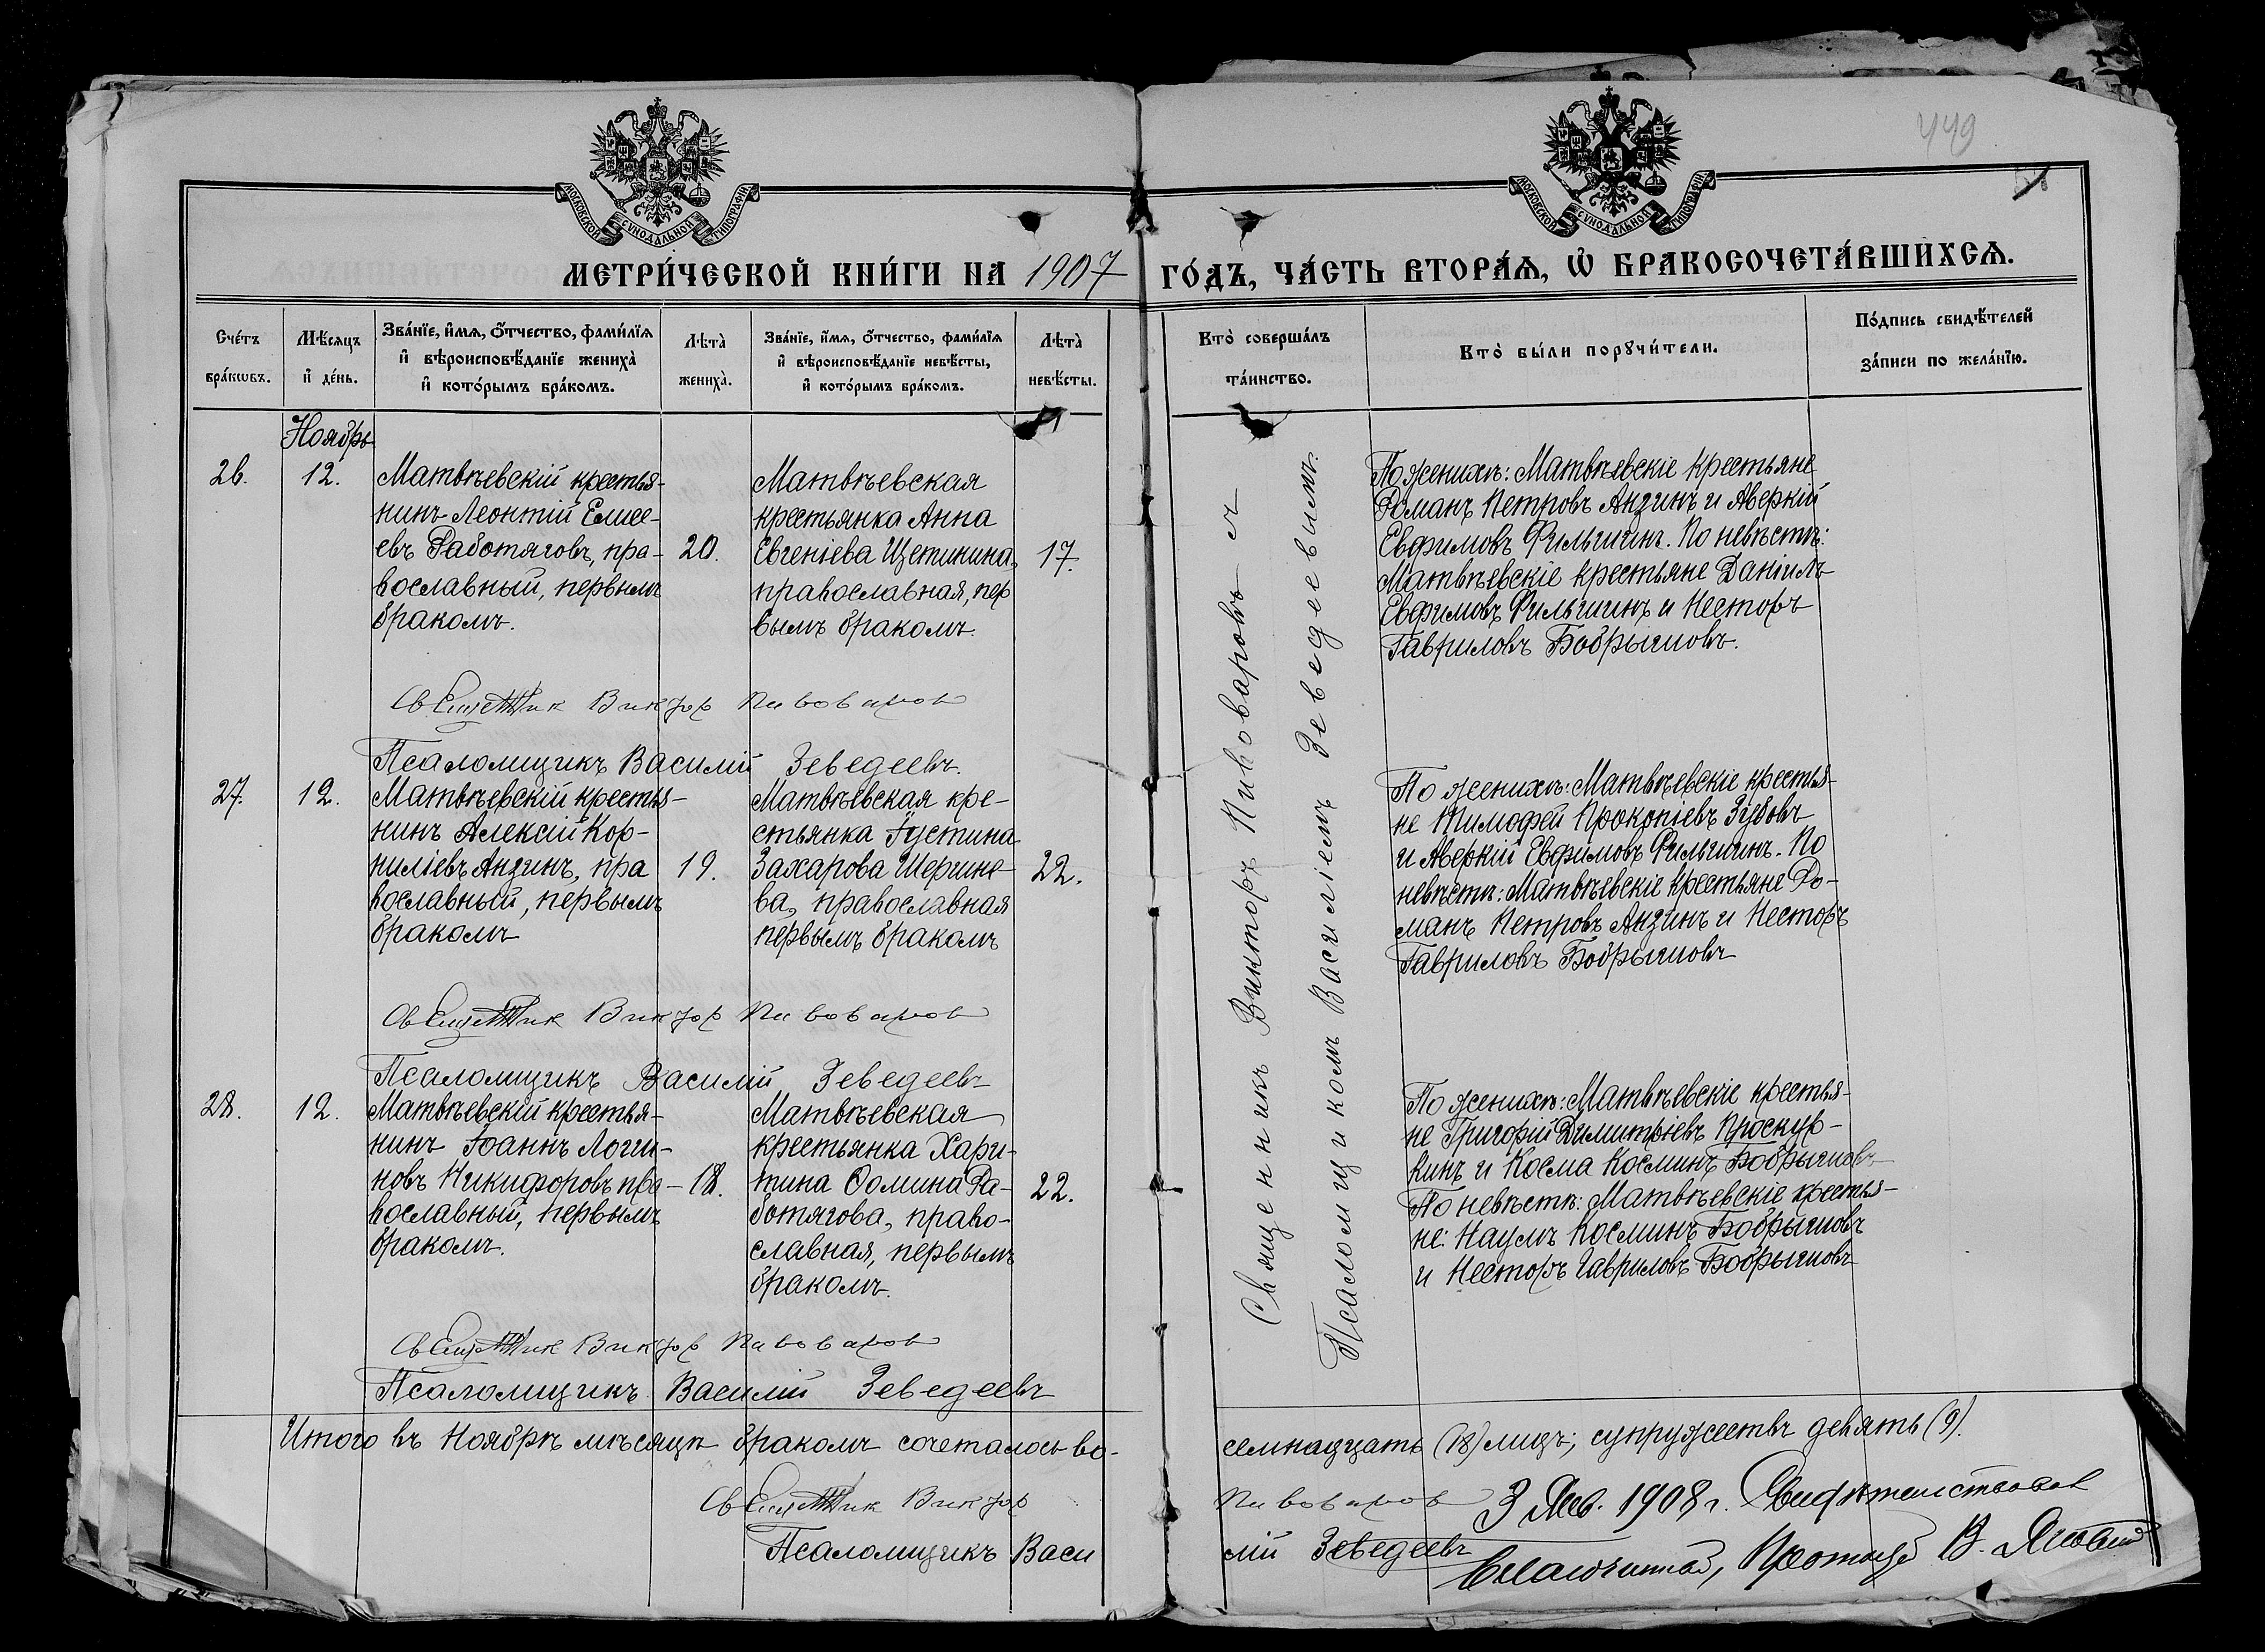 449
МОСКОВСКОЙ СѴНОДАЛЬНОЙ ТИПОГРАФІИ
МОСКОВСКОЙ СѴНОДАЛЬНОЙ ТИПОГРАФІИ
МЕТРИ́ЧЕСКОЙ КНИ́ГИ НА 1907 ГО́ДЪ, ЧА́СТЬ ВТОРА́Ѧ, Ѡ БРАКОСОЧЕТА́ВШИХСѦ.
Сче́тъ бра́кѡвъ.
Мѣ́сяцъ и҆ де́нь.
Зва́нїе, и҆́мѧ, ѻ҆́тчество, фами́лїѧ
и҆ вѣроисповѣ́данїе жениха̀
и҆ кото́рымъ бра́комъ.
Лѣта̀ жениха̀.
Зва́нїе, и҆́мѧ, ѻ҆́тчество, фами́лїѧ
и҆ вѣроисповѣ́данїе невѣ́сты,
и҆ кото́рымъ бра́комъ.
Лѣта̀ невѣ́сты.
Кто̀ соверша́лъ
та́инство.
Кто̀ бы́ли порꙋчи́тели.
По́дпись свидѣ́телей
за́писи по жела́нїю.
Ноябрь
26.
12.
Матвѣевскій крестья-
нинъ Леонтій Елисе-
евъ Работяговъ, пра-
вославный, первымъ
бракомъ.
20.
Матвѣевская
крестьянка Анна
Евгеніева Щетинина,
православная, пер
вымъ бракомъ.
17.
По женихѣ: Матвѣевскіе крестьяне
Романъ Петровъ Анзинъ и Аверкій
Евфимовъ Фильшинъ. По невѣстѣ:
Матвѣевскіе крестьяне Даніилъ
Евфимовъ Фильшинъ и Несторъ
Гавриловъ Бобрышовъ.
Священник Виктор Пивоваров
Псаломщикъ Василій Зеведеевъ.
27.
12.
Матвѣевскій крестья-
нинъ Алексій Кор-
ниліевъ Анзинъ, пра
вославный, первымъ
бракомъ
19.
Матвѣевская кре-
стьянка Іустина
Захарова Шершне-
ва, православная
первымъ бракомъ
22.
По женихѣ: Матвѣевскіе крестья-
не Тимофей Прокопіевъ Зубовъ
и Аверкій Евфимовъ Фильшинъ. По
невѣстѣ: Матвѣевскіе крестьяне Ро-
манъ Петровъ Анзинъ и Несторъ
Гавриловъ Бобрышовъ
Священник Виктор Пивоваров
Псаломщикъ Василій Зеведеевъ
28.
12.
Матвѣевскій крестья-
нинъ Іоаннъ Логи-
новъ Никифоровъ пра-
вославный, первымъ
бракомъ.
18.
Матвѣевская
крестьянка Хари-
тина Ѳомина Ра-
ботягова, право-
славная, первымъ
бракомъ.
22.
По женихѣ: Матвѣевскіе крестья-
не Григорій Димитріевъ Проскур-
кинъ и Косма Косминъ Бобрышовъ
По невѣстѣ: Матвѣевскіе крестья-
не: Наумъ Косминъ Бобрышовъ
и Несторъ Гавриловъ Бобрышовъ
Священник Виктор Пивоваров
Псаломщикъ Василій Зеведеевъ
Священникъ Викторъ Пивоваровъ съ
Псаломщикомъ Василіемъ Зеведеевымъ.
Итого въ Ноябрѣ мѣсяцѣ бракомъ сочеталось во-
семнадцать (18) лицъ; супружествъ девять (9).
Священник Виктор Пивоваров
Псаломщикъ Василій Зеведеевъ
3 Янв. 1908 г. Свидѣтельствовал
Благочинный, Протоіер В.